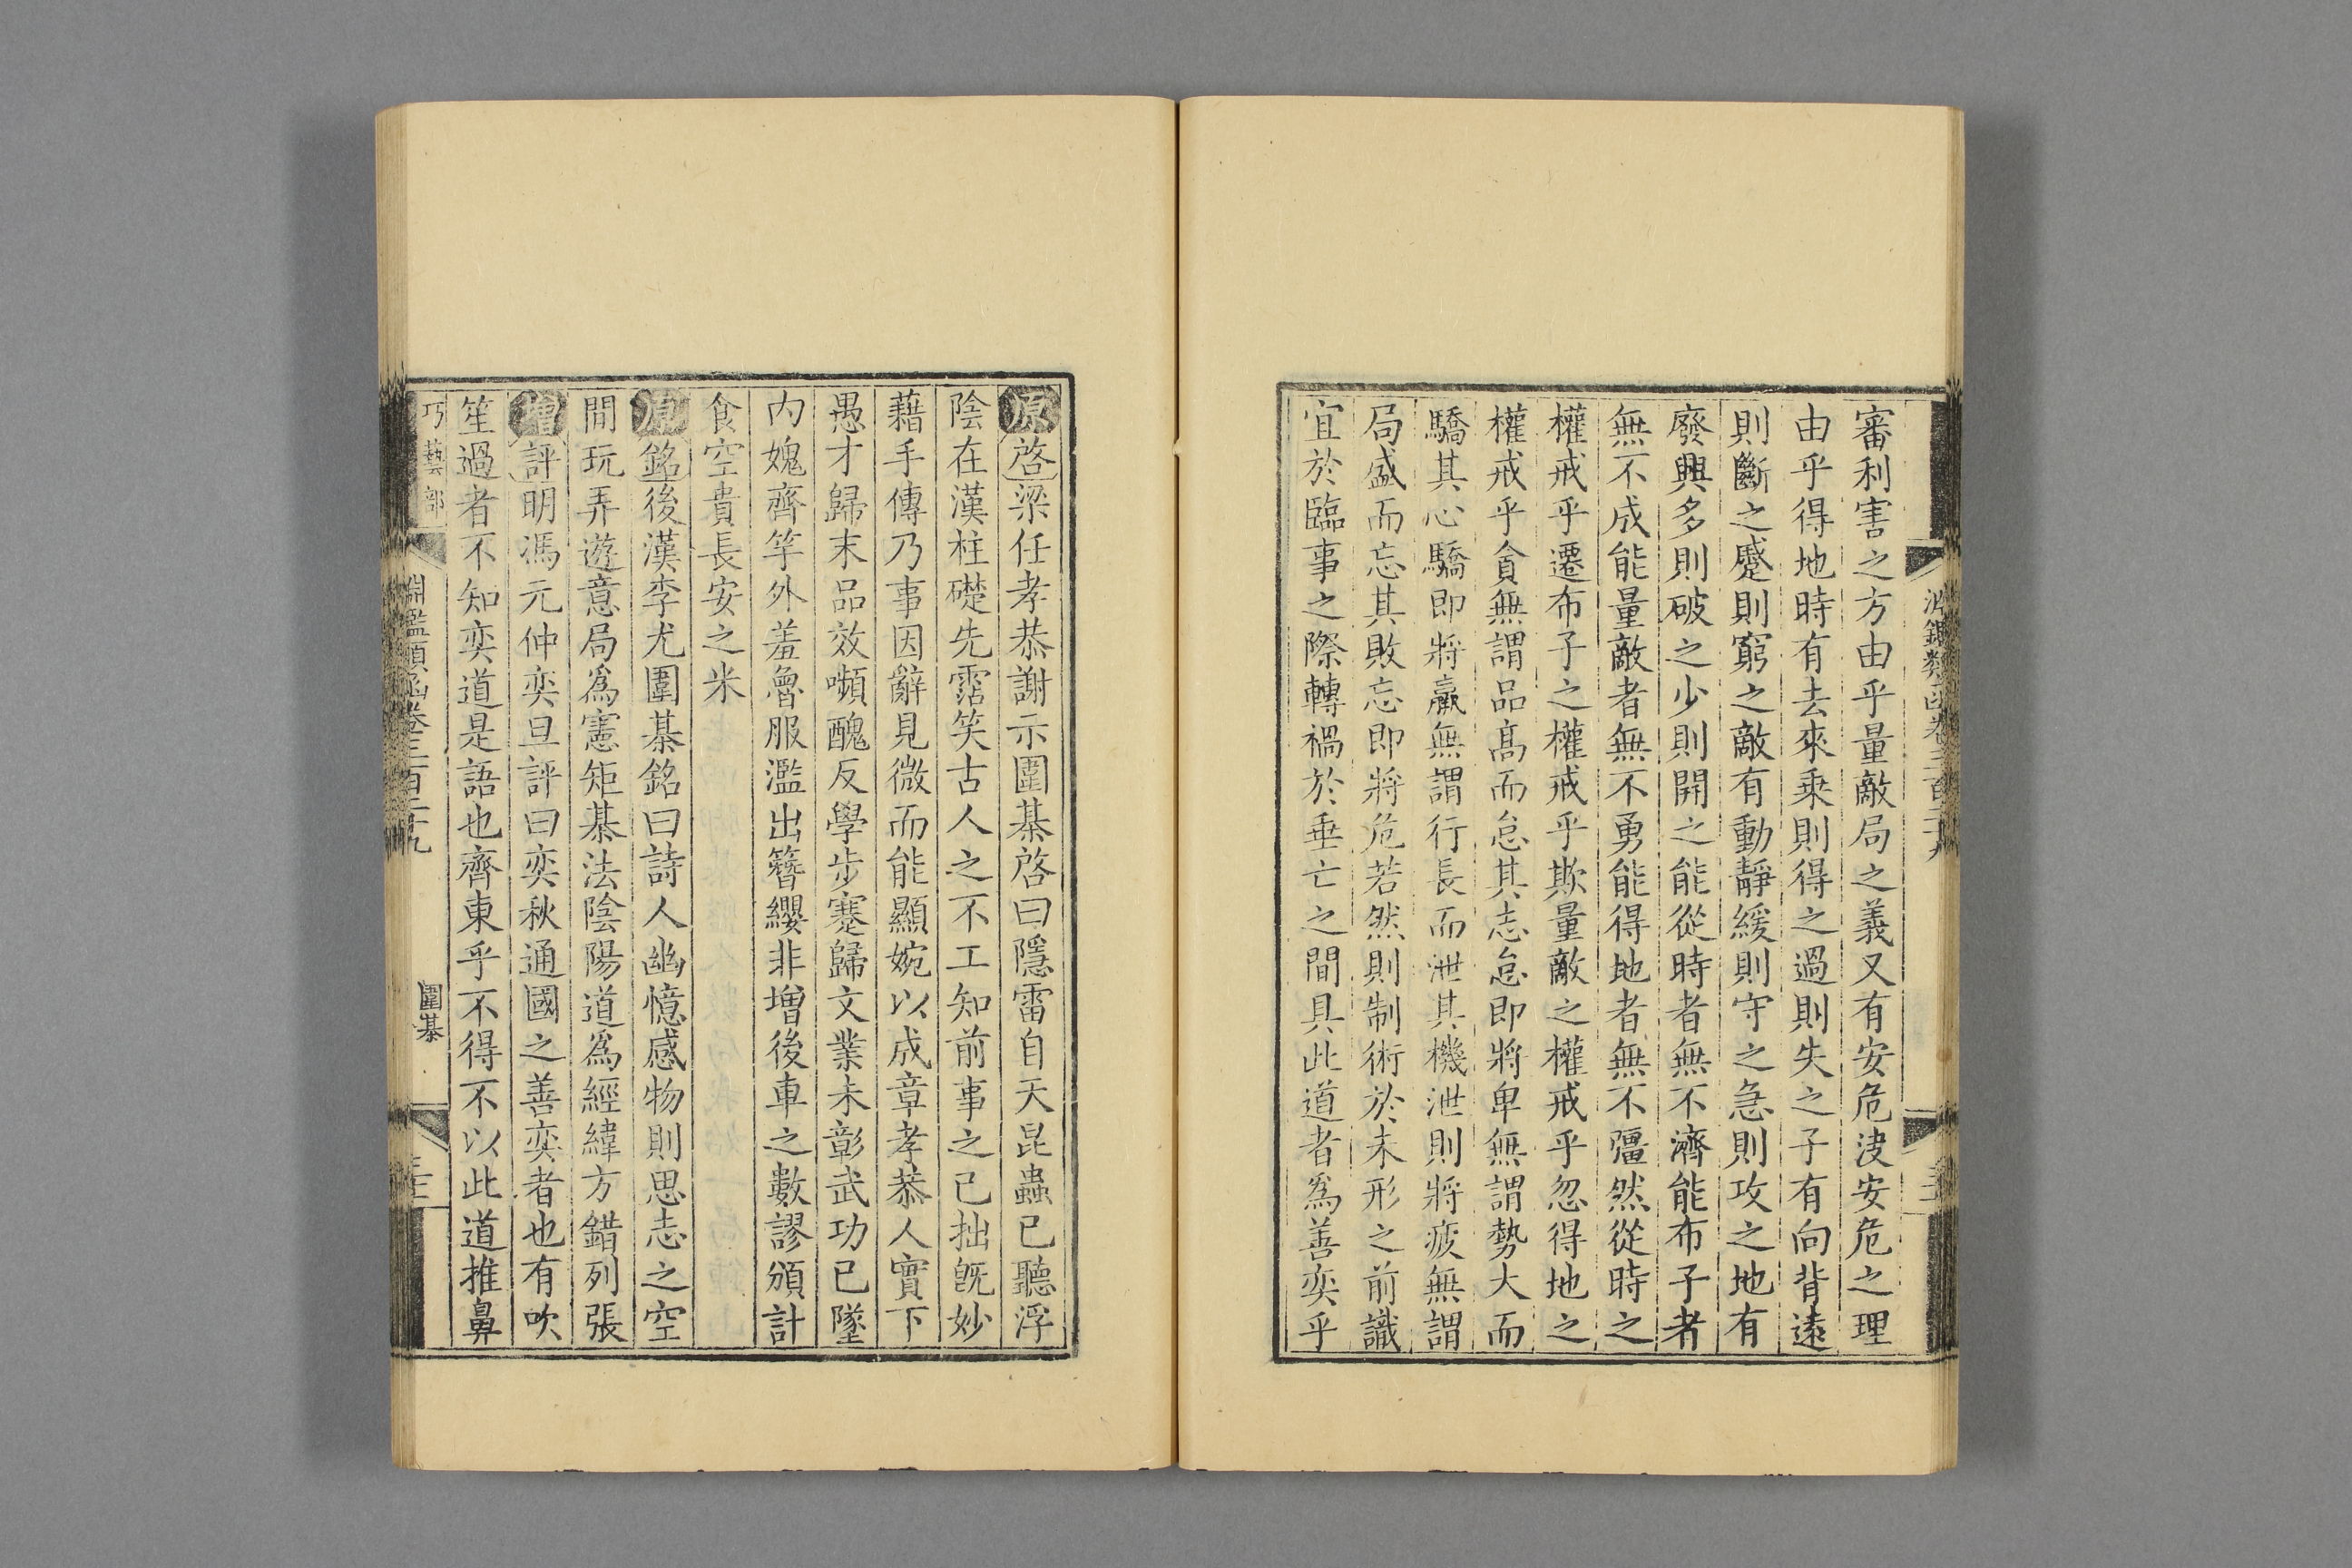 審利害之方由乎量敵局之義又有安危決安危之理
由乎得地時有去來乗則得之過則失之子有向背遠
則斷之蹙則窮之敵有動靜緩則守之急則攻之地有
廢興多則破之少則開之能從時者無不濟能布子者
無不成能量敵者無不勇能得地者無不彊然從時之
權戒乎遷布子之權戒乎欺量敵之權戒乎忽得地之
權戒乎貪無謂品髙而怠其志怠即將卑無謂勢大而
驕其心驕即將羸無謂行長而泄其機泄則將疲無謂
局盛而忘其敗忘即將危若然則制術於未形之前識
宜於臨事之際轉禍於垂亡之間具此道者為善奕乎
原啓梁任孝恭謝示圍棊啓曰隱雷自天昆蟲已聽浮
陰在漢柱礎先霑笑古人之不工知前事之已拙旣妙
藉手傳乃事因辭見微而能顯婉以成章孝恭人實下
愚才歸末品效嚬醜反學步蹇歸文業未彰武功已墜
内媿齊竽外羞魯服濫出簪纓非增後車之數謬頒計
食空貴長安之米
原銘後漢李尤圍棊銘曰詩人幽憶感物則思志之空
間玩弄遊意局為憲矩棊法陰陽道為經緯方錯列張
增評明馮元仲奕旦評曰奕秋通國之善奕者也有吹
笙過者不知奕道是語也齊東乎不得不以此道推鼻
巧藝部
淵鑑類函卷三百二十九
圍棊